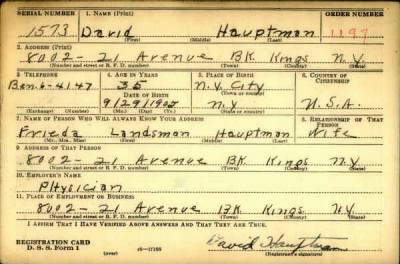 SERIAL NUMBER 1. NAME (Print) ORDER NUMBER
1573 David Hauptman 1197
(First) (Middle) (Last)
2. ADDRESS (Print)
8002-21 Avenue BK. Kings N.Y.
(Number and street or R. F. D. number) (Town) (County) (State)
3. TELEPHONE 4. AGE IN YEARS 5. PLACE OF BIRTH 6. COUNTRY OF CITIZENSHIP
Ben. 6-4147 35 N.Y. City
DATE OF BIRTH (Town or county)
9/29/1905 N.Y. U.S.A.
(Exchange) (Number) (Mo.) (Day) (Yr.) (State or country)
7. NAME OF PERSON WHO WILL ALWAYS KNOW YOUR ADDRESS 8. RELATIONSHIP OF THAT PERSON
Frieda Landsman Hauptman Wife
(Mr., Mrs., Miss) (First) (Middle) (Last)
9. ADDRESS OF THAT PERSON
8002-21 Avenue BK. Kings N.Y.
(Number and street or R. F. D. number) (Town) (County) (State)
10. EMPLOYER'S NAME
Physician
11. PLACE OF EMPLOYMENT OR BUSINESS
8002-21 Avenue BK. Kings N.Y.
(Number and street or R. F. D. number) (Town) (County) (State)
I AFFIRM THAT I HAVE VERIFIED ABOVE ANSWERS AND THAT THEY ARE TRUE.
REGISTRATION CARD
D. S. S. Form 1 (over) 16-17105 David Hauptman
(Registrant's signature)